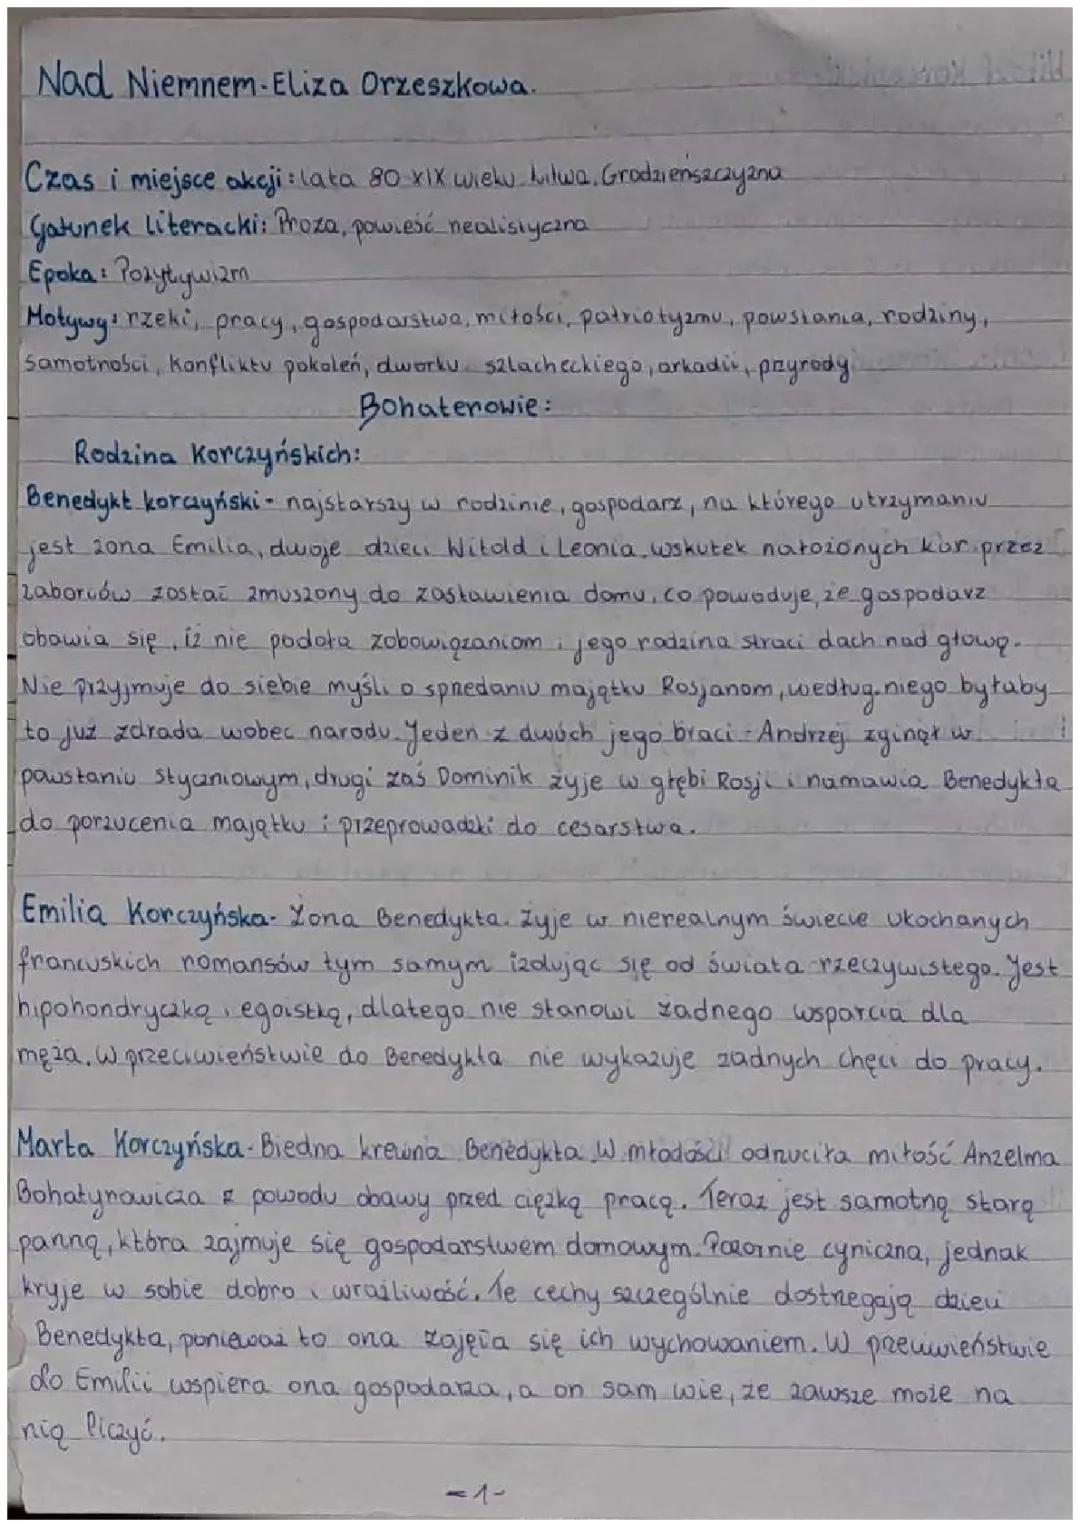 Nad Niemnem-Eliza Orzeszkowa.
Czas i miejsce akcji: lata 80 XIX wieku Litwa, Grodzieńszczyzna
Gatunek literacki: Proza, powieść realistyczna
Epoka: Pozytywizm
Motywy: rzeki, pracy, gospodarstwa, miłości, patriotyzmu, powstania, rodziny,
samotności, konfliktu pokoleń, dworku szlacheckiego, arkadii, przyrody
Bohaterowie:
Rodzina Korczyńskich:
Benedykt korczyński- najstarszy w rodzinie, gospodarz, na którego utrzymaniu
jest żona Emilia, dwoje dzieci Witold i Leonia. wskutek nałożonych kar przez
zaborców został zmuszony do zastawienia domu, co powoduje, że gospodarz
obawia się, iż nie podoła zobowiązaniom i jego rodzina straci dach nad głową.
Nie przyjmuje do siebie myśli o sprzedaniu majątku Rosjanom, według niego byłaby
to już zdrada wobec narodu. Jeden z dwóch jego braci - Andrzej zginął w
powstaniu styczniowym, drugi zaś Dominik żyje w głębi Rosji i namawia Benedykta
do porzucenia majątku i przeprowadzki do cesarstwa.
Emilia Korczyńska- Żona Benedykta. żyje w nierealnym świecie ukochanych
francuskich romansów tym samym izolując się od świata rzeczywistego. Jest
hipohondryczką i egoistką, dlatego nie stanowi żadnego wsparcia dla
męża. W przeciwieństwie do Benedykta nie wykazuje żadnych chęci do pracy.
Marta Korczyńska- Biedna krewna Benedykta. W młodości odrzuciła miłość Anzelma
Bohatyrowicza z powodu obawy przed ciężką pracą. Teraz jest samotną starą
panną, która zajmuje się gospodarstwem domowym. Pozornie cyniczna, jednak
kryje w sobie dobro i wrażliwość. Te cechy szczególnie dostrzegają dzieci
Benedykta, ponieważ to ona zajęła się ich wychowaniem. W przeciwieństwie
do Emilii wspiera ona gospodarza, a on sam wie, że zawsze może na
nią liczyć.
-1-